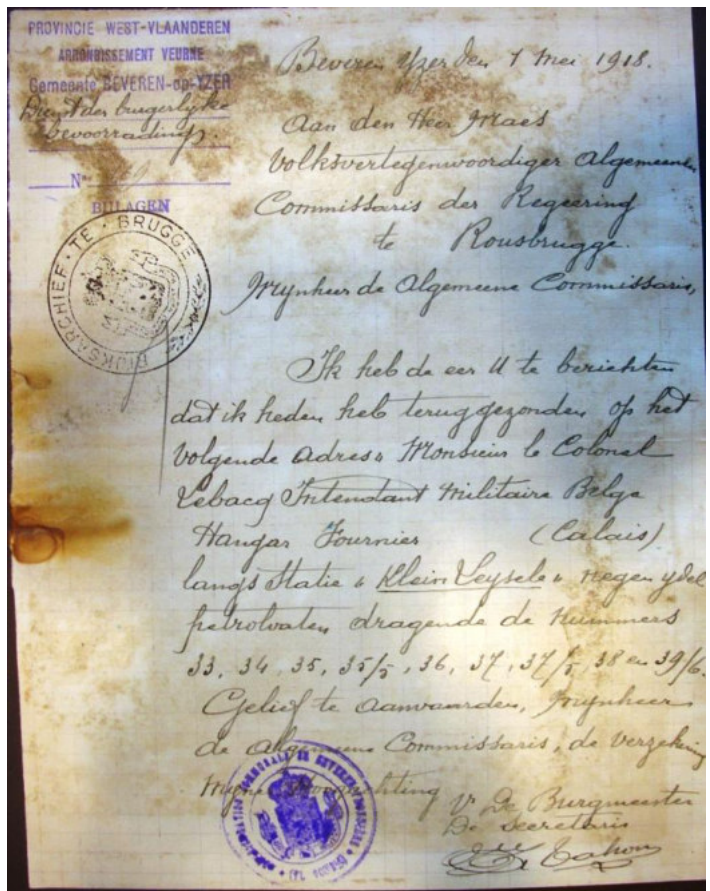 PROVINCIE WEST-VLAANDEREN
ARRONDISSEMENT VEURNE
Gemeente BEVEREN-op-YZER
Dienst der burgerlyke
bevoorrading.
No
BIJLAGEN
RIJKSARCHIEF · TE · BRUGGE
Beveren Yzer den 1 Mei 1918.
Aan den Heer Maes
Volksvertegenwoordiger Algemeenen
Commissaris der Regeering
te Rousbrugge.
Mynheer de Algemeene Commissaris,
Ik heb de eer U te berichten
dat ik heden heb teruggezonden op het
volgende adres " Monsieur le Colonel
Lebacq Intendant Militaire Belge
Hangar Fournier (Calais)
langs Statie " Klein Leysele " negen ydel
petrolvaten dragende de nummers
33, 34, 35, 35/5, 36, 37, 37/5, 38 en 39/6.
Gelief te aanvaarden, Mynheer
de Algemeene Commissaris, de verzekering
myner Hoogachting
Vr De Burgmeester
De Secretaris
Tahon